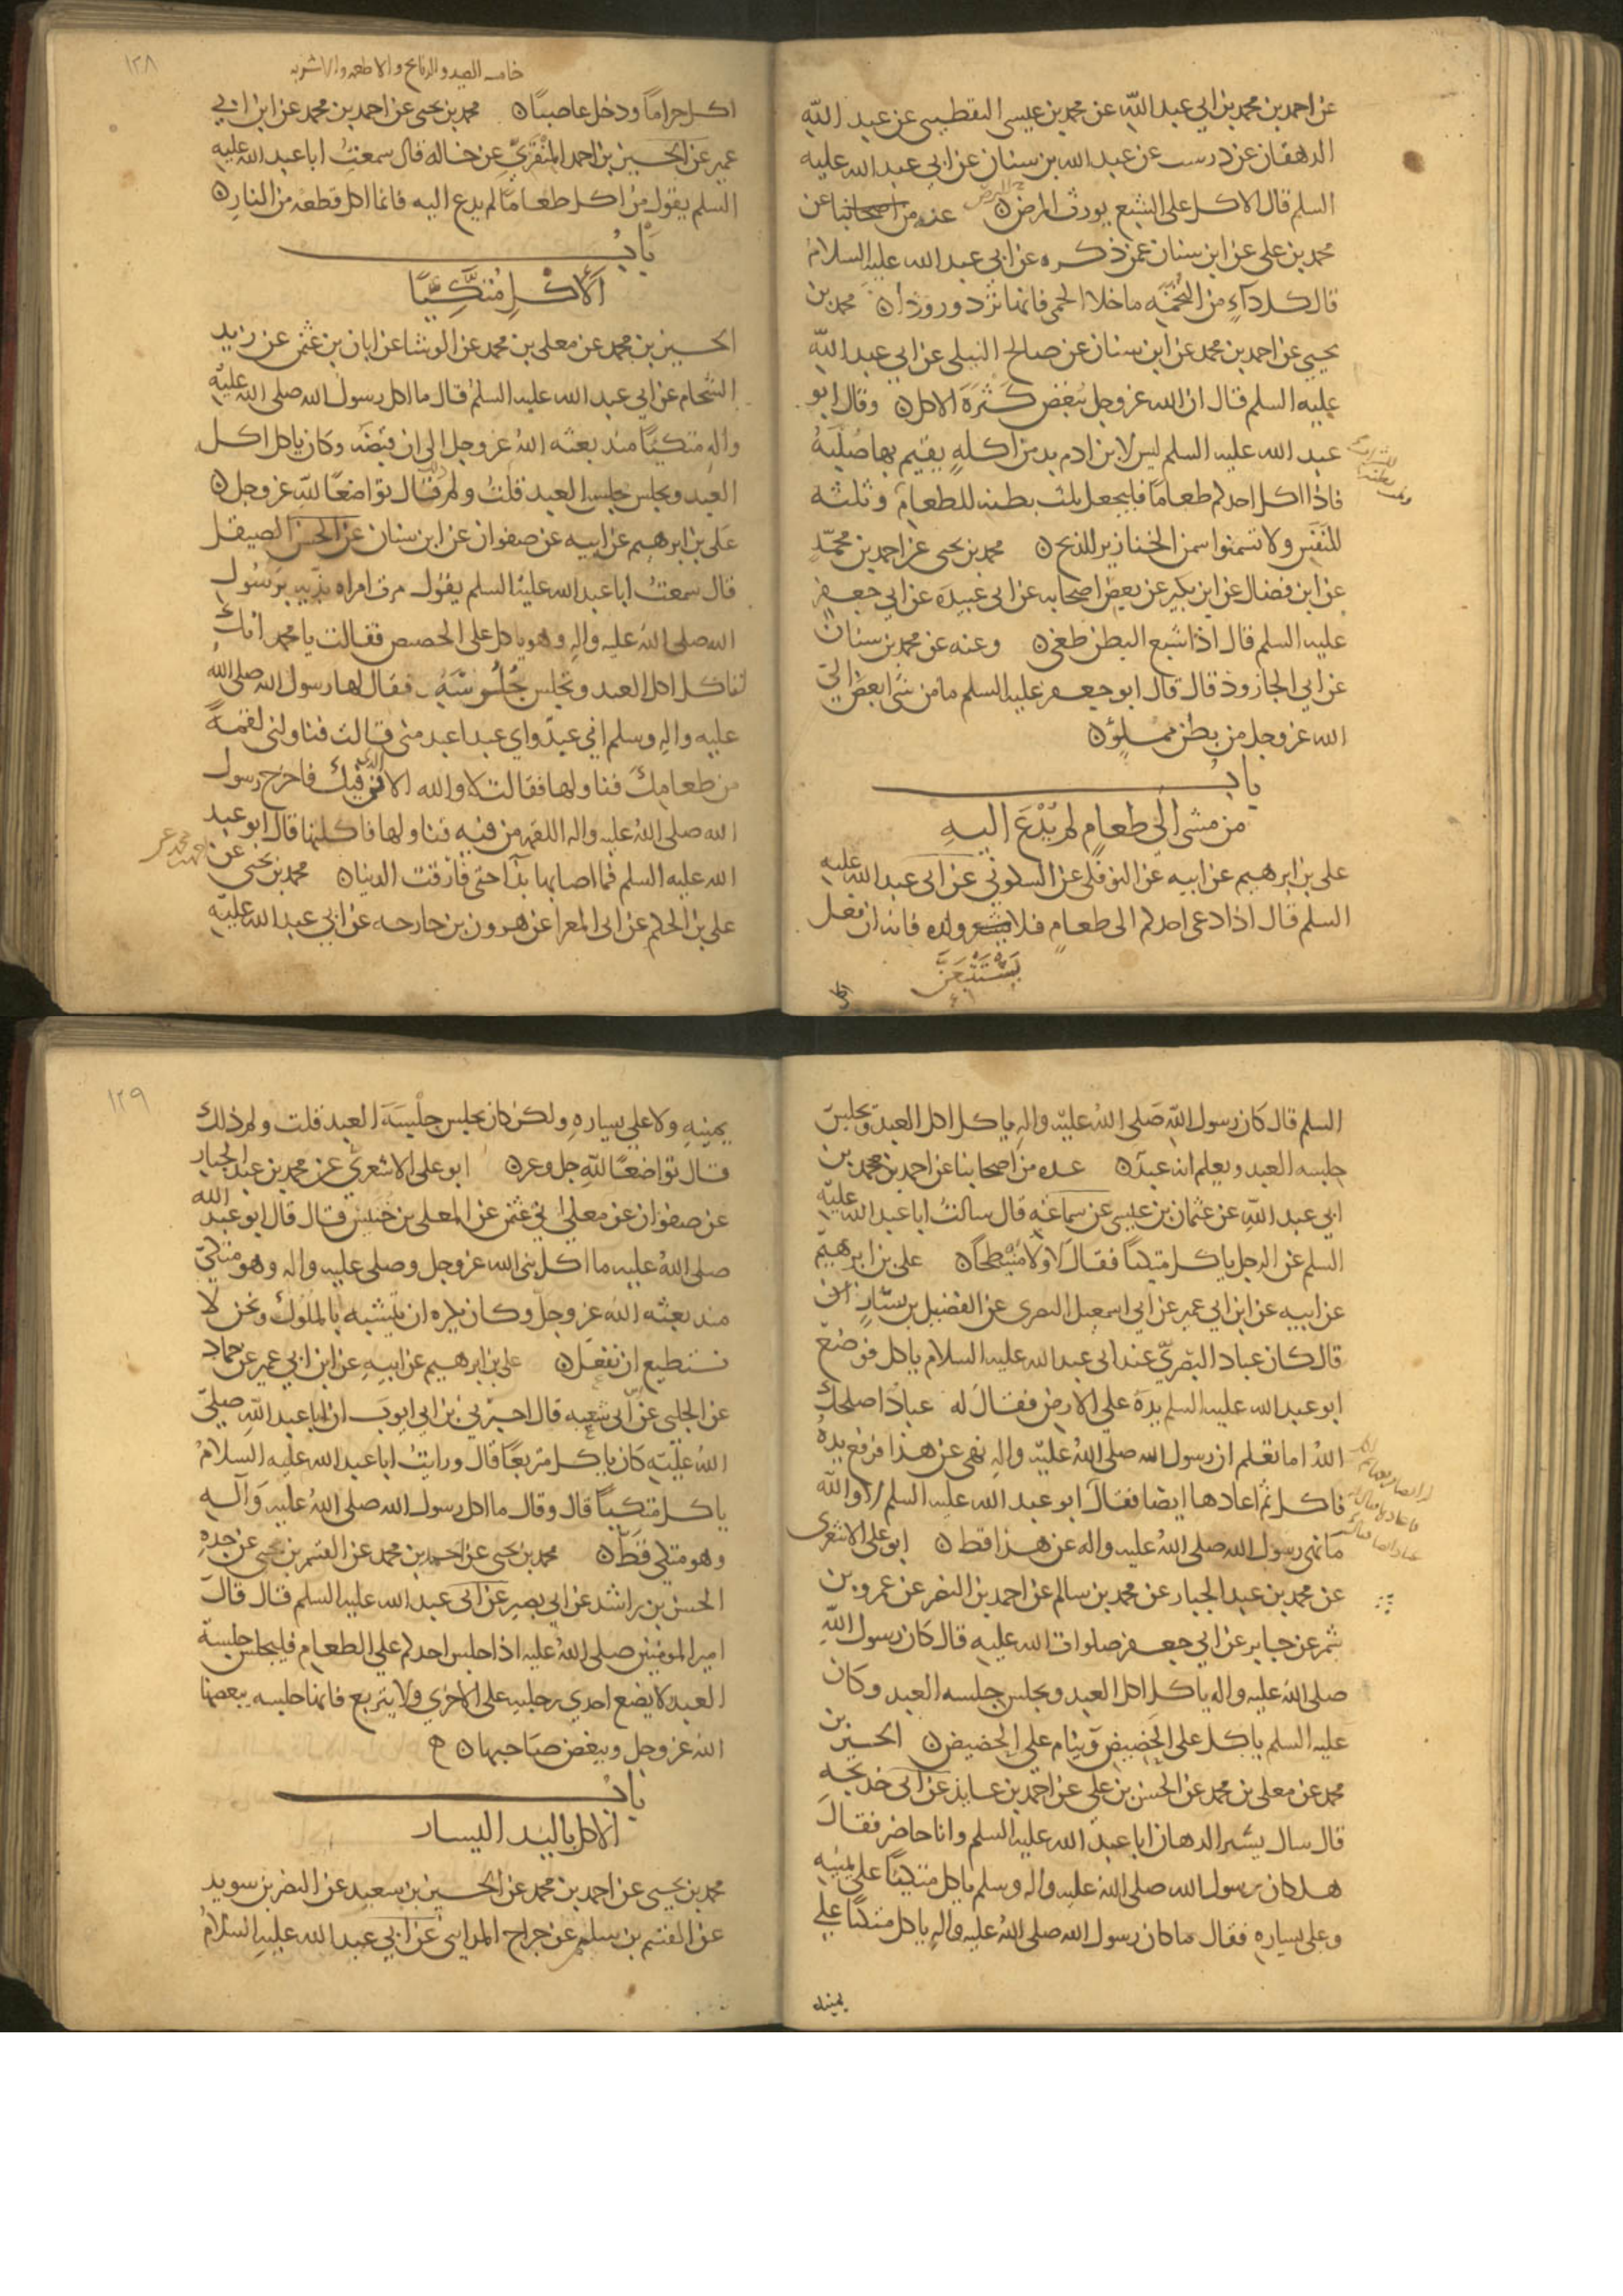 عن احمد بن محمد بن ابي عبد الله عن محمد بن عيسى اليقطيني عن عبيد الله
الدهقان عن درست عن عبد الله بن سنان عن ابي عبد الله عليه
السلم قال الاكل على الشبع يورث البرص عنه من اصحابنا عن
محمد بن علي عن ابن سنان عمن ذكره عن ابي عبد الله عليه السلام
قال كل داء من التخمه ما خلا الحمى فانها ترد ورودا محمد بن
يحيى عن احمد بن محمد عن ابن سنان عن صالح النيلي عن ابي عبد الله
عليه السلم قال ان الله عز وجل يبغض كثرة الاكل وقال ابو
عبد الله عليه السلم ليس لابن ادم بد من اكله يقيم بها صلبه
فاذا اكل احدكم طعاما فليجعل ثلث بطنه للطعام وثلثه
للنفس ولا تسمنوا سمن الخنازير للذبح محمد بن يحيى عن احمد بن محمد
عن ابن فضال عن ابن بكير عن بعض اصحابه عن ابي عبيده عن ابي جعفر
عليه السلم قال اذا شبع البطن طغى وعنه عن محمد بن سنان
عن ابي الجازود قال قال ابو جعفر عليه السلم ما من شي ابغض الى
الله عز وجل من بطن مملوء
باب
من مشى الى طعام لم يدع اليه
علي بن ابرهيم عن ابيه عن النوفلي عن السكوني عن ابي عبد الله عليه
السلم قال اذا دعي احدكم الى طعام فلا ولده فانه ان فعل
يستتبعن
اكل
خامسه الصيد والذبايح والاطعمه والاشربه
١٢٨
اكل حراما ودخل عاصيا محمد بن يحيى عن احمد بن محمد عن ابن ابي
عمير عن الحسين بن احمد المنقري عن خاله قال سمعت ابا عبد الله عليه
السلم يقول من اكل طعاما لم يدع اليه فانما اكل قطعه من النار
باب
الاكل متكيا
الحسين بن محمد عن معلى بن محمد عن الوشا عن ابان بن عثمن عن زيد
الشحام عن ابي عبد الله عليه السلم قال ما اكل رسول الله صلى الله عليه
واله متكيا منذ بعثه الله عز وجل الى ان قبضه وكان ياكل اكل
العبد ويجلس جلسه العبد قلت ولم قال تواضعا لله عز وجل
علي بن ابرهيم عن ابيه عن صفوان عن ابن سنان عن الحسن الصيقل
قال سمعت ابا عبد الله عليه السلم يقول مرت امراه بذيه برسول
الله صلى الله عليه واله وهو ياكل على الحضيض فقالت يا محمد انك
لتاكل اكل العبد وتجلس جلوسه فقال لها رسول الله صلى الله
عليه واله وسلم اني عبد واي عبد اعبد مني قالت فناولني لقمة
من طعامك فناولها فقالت لا والله الا في فيك فاخرج رسول
الله صلى الله عليه واله اللقمه من فيه فناولها فاكلتها قال ابو عبد
الله عليه السلم فما اصابها بذا حتى فارقت الدنيا محمد بن يحيى عن
علي بن الحكم عن ابي المعرا عن هرون بن خارجه عن ابي عبد الله عليه
السلم قال كان رسول الله صلى الله عليه واله ياكل اكل العبد ويجلس
جلسه العبد ويعلم انه عبد عده من اصحابنا عن احمد بن محمد بن
ابي عبد الله عن عثمان بن عيسى عن سماعه قال سالت ابا عبد الله عليه
السلم عن الرجل ياكل متكيا فقال لا ولا منبطحا علي بن ابرهيم
عن ابيه عن ابن ابي عمير عن ابي اسمعيل البصري عن الفضيل بن يسار
قال كان عباد البصري عند ابي عبد الله عليه السلام ياكل فوضع
ابو عبد الله عليه السلم يده على الارض فقال له عباد اصلحك
الله اما تعلم ان رسول الله صلى الله عليه واله نهى عن هذا فرفع يده
فاكل ثم اعادها ايضا فقال ابو عبد الله عليه السلم لا والله
ما نهى رسول الله صلى الله عليه واله عن هذا قط ابو علي الاشعري
عن محمد بن عبد الجبار عن محمد بن سالم عن احمد بن النضر عن عمرو بن
شمر عن جابر عن ابي جعفر صلوات الله عليه قال كان رسول الله
صلى الله عليه واله ياكل اكل العبد ويجلس جلسه العبد وكان
عليه السلم ياكل على الحضيض وينام على الحضيض الحسين بن
محمد عن معلى بن محمد عن الحسن بن علي عن احمد بن عايذ عن ابي خديجه
قال سال بشير الدهان ابا عبد الله عليه السلم وانا حاضر فقال
هل كان رسول الله صلى الله عليه واله وسلم ياكل متكيا على يمينه
وعلى يساره فقال ما كان رسول الله صلى الله عليه واله ياكل متكيا على
يمينه
١٢٩
يمينه ولا على يساره ولكن كان يجلس جلسة العبد قلت ولم ذلك
قال تواضعا لله جل وعز ابو علي الاشعري عن محمد بن عبد الجبار
عن صفوان عن معلى ابي عثمن عن المعلى بن خنيس قال قال ابو عبد الله
صلى الله عليه ما اكل نبى الله عز وجل وصلى عليه واله وهو متكي
منذ بعثه الله عز وجل وكان يكره ان يتشبه بالملوك ونحن لا
نستطيع ان نفعل علي بن ابرهيم عن ابيه عن ابن ابي عمير عن حماد
عن الحلبي عن ابي شعبه قال اخبرني بن ابي ايوب ان ابا عبد الله صلى
الله عليه كان ياكل متربعا قال ورايت ابا عبد الله عليه السلام
ياكل متكيا قال وقال ما اكل رسول الله صلى الله عليه واله
وهو متكي قط محمد بن يحيى عن احمد بن محمد عن القسم بن يحيى عن جده
الحسن بن راشد عن ابي بصير عن ابي عبد الله عليه السلم قال قال
امير المومنين صلى الله عليه اذا جلس احدكم على الطعام فليجلس جلسة
العبد لا يضع احدى رجليه على الاخرى ولا يتربع فانها جلسه يبغضها
الله عز وجل ويبغض صاحبها
باب
الاكل باليد اليسار
محمد بن يحيى عن احمد بن محمد عن الحسين بن سعيد عن النضر بن سويد
عن القسم بن سليمن عن جراح المدايني عن ابي عبد الله عليه السلام